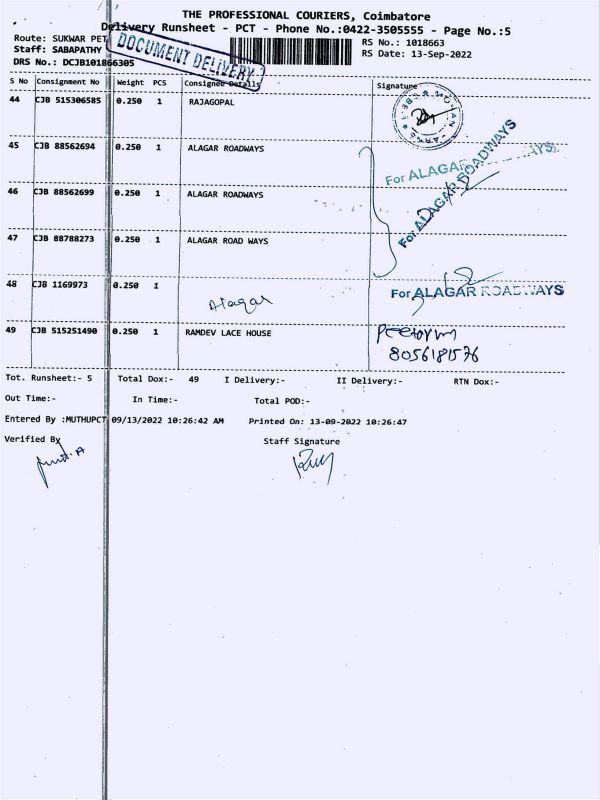 THE PROFESSIONAL COURIERS, Coimbatore
Delivery Runsheet - PCT - Phone No.:0422-3505555 - Page No.:5
Route: SUKWAR PET
RS No.: 1018663
Staff: SABAPATHY
RS Date: 13-Sep-2022
DRS No.: DCJB101866305
DOCUMENT DELIVERY
S No Consignment No Weight PCS Consignee Details Signature
44 CJB 515306585 0.250 1 RAJAGOPAL
45 CJB 88562694 0.250 1 ALAGAR ROADWAYS
For ALAGAR
For ALAGAR ROADWAYS
46 CJB 88562699 0.250 1 ALAGAR ROADWAYS
47 CJB 88788273 0.250 1 ALAGAR ROAD WAYS
48 CJB 1169973 0.250 1 Alagar For ALAGAR ROADWAYS
49 CJB 515251490 0.250 1 RAMDEV LACE HOUSE
8056181576
Tot. Runsheet:- 5 Total Dox:- 49 I Delivery:- II Delivery:- RTN Dox:-
Out Time:- In Time:- Total POD:-
Entered By :MUTHUPCT 09/13/2022 10:26:42 AM Printed On: 13-09-2022 10:26:47
Verified By Staff Signature